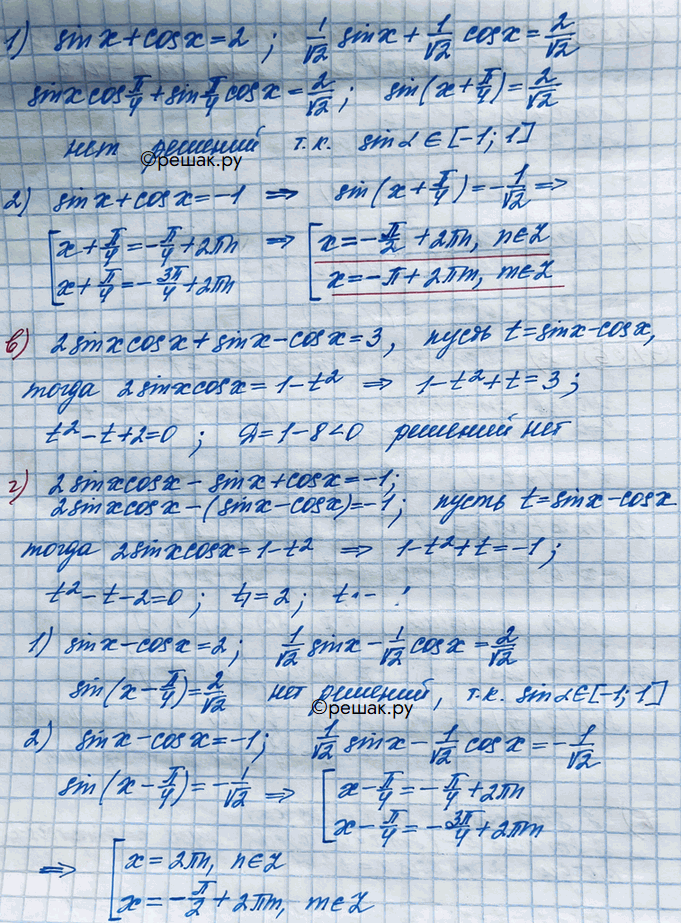 1) sin x + cos x = 2 ; 1/√2 sin x + 1/√2 cos x = 2/√2
sin x cos π/4 + sin π/4 cos x = 2/√2 ; sin(x + π/4) = 2/√2
нет решений т.к. sin α ∈ [-1; 1]
©решак.ру
2) sin x + cos x = -1 ⇒ sin(x + π/4) = -1/√2 ⇒
[ x + π/4 = -π/4 + 2πn ⇒ [ x = -π/2 + 2πn, n ∈ Z
x + π/4 = -3π/4 + 2πn x = -π + 2πm, m ∈ Z
в) 2 sin x cos x + sin x - cos x = 3, пусть t = sin x - cos x,
тогда 2 sin x cos x = 1 - t² ⇒ 1 - t² + t = 3 ;
t² - t + 2 = 0 ; Д = 1 - 8 < 0 решений нет
г) 2 sin x cos x - sin x + cos x = -1 ;
2 sin x cos x - (sin x - cos x) = -1 ; пусть t = sin x - cos x
тогда 2 sin x cos x = 1 - t² ⇒ 1 - t² + t = -1 ;
t² - t - 2 = 0 ; t₁ = 2 ;
1) sin x - cos x = 2 ; 1/√2 sin x - 1/√2 cos x = 2/√2
sin(x - π/4) = 2/√2 нет решений, т.к. sin α ∈ [-1; 1]
©решак.ру
2) sin x - cos x = -1 ; 1/√2 sin x - 1/√2 cos x = -1/√2
sin(x - π/4) = -1/√2 ⇒ [ x - π/4 = -π/4 + 2πn
x - π/4 = -3π/4 + 2πm
⇒ [ x = 2πn, n ∈ Z
x = -π/2 + 2πm, m ∈ Z